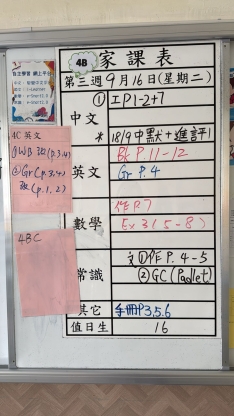 自主學習 網上平台
4B
家課表
第三週9月16日(星期二)
中文
① IP1-2+7
* 18/9中默+進評1
英文
Bk P.11-12
Gr P.4
數學
作R7
Ex 3(5-8)
常識
①作P.4-5
②GC(Padlet)
其它
手冊P3,5,6
值日生
16
4C 英文
①WB 班(p.3,4)
②Gr(p.3,4)
班(p.1,2)
4BC